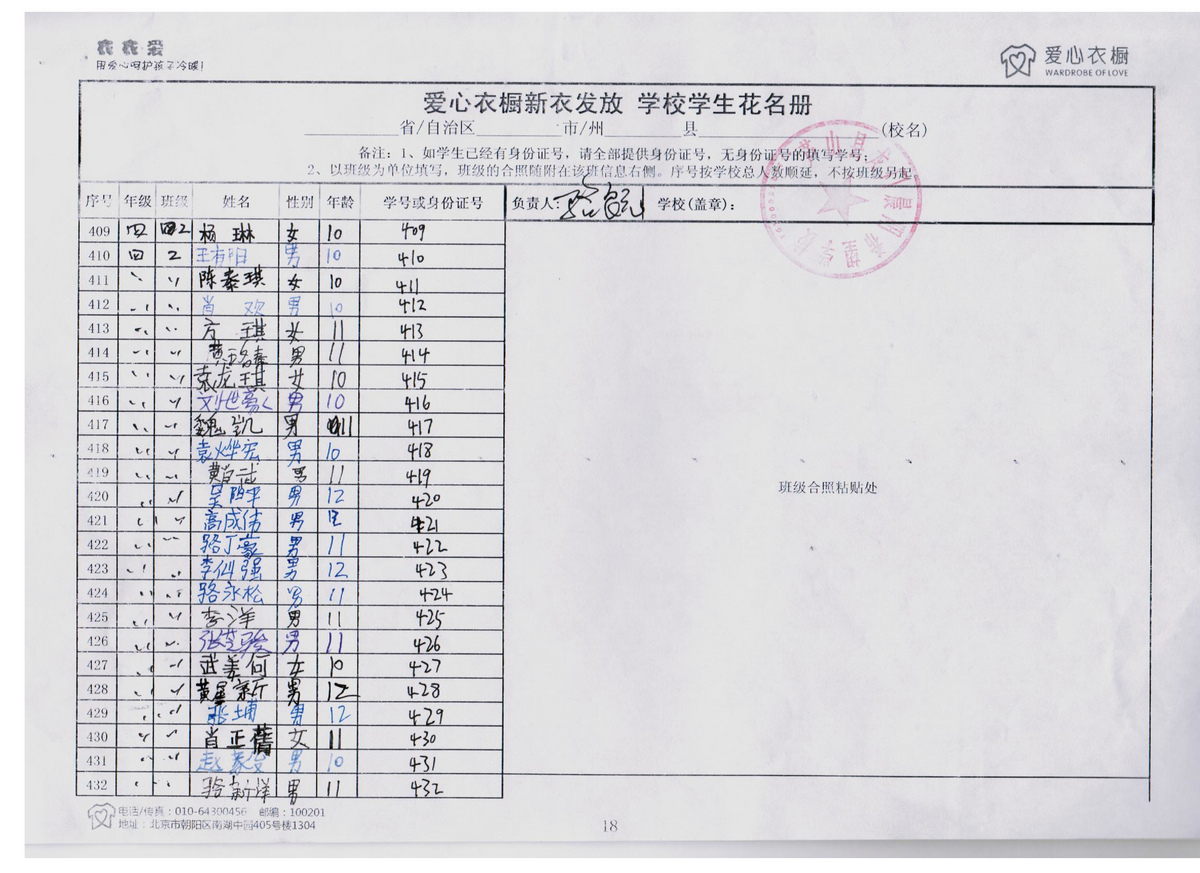 衣衣爱
用爱心呵护孩子冷暖!
爱心衣橱
WARDROBE OF LOVE
爱心衣橱新衣发放 学校学生花名册
省/自治区 市/州 县 (校名)
备注：1、如学生已经有身份证号，请全部提供身份证号，无身份证号的填写学号；
2、以班级为单位填写，班级的合照随附在该班信息右侧。序号按学校总人数顺延，不按班级另起。
序号 年级 班级 姓名 性别 年龄 学号或身份证号 负责人： 学校(盖章)：
409 四 四2 杨琳 女 10 409
410 四 2 王有阳 男 10 410
411 〃 〃 陈泰琪 女 10 411
412 〃 〃 肖欢 男 10 412
413 〃 〃 方琪 女 11 413
414 〃 〃 黄 男 11 414
415 〃 〃 袁龙琪 女 10 415
416 〃 〃 刘世豪 男 10 416
417 〃 〃 魏凯 男 11 417
418 〃 〃 袁烨宏 男 10 418
419 〃 〃 黄 男 11 419
420 〃 〃 吴阳平 男 12 420
421 〃 〃 高成伟 男 12 421
422 〃 〃 路丁豪 男 11 422
423 〃 〃 李 强 男 12 423
424 〃 〃 路永松 男 11 424
425 〃 〃 李洋 男 11 425
426 〃 〃 张芝骏 男 11 426
427 〃 〃 武美何 女 10 427
428 〃 〃 黄星新 男 12 428
429 〃 〃 张埔 男 12 429
430 〃 〃 肖正蕾 女 11 430
431 〃 〃 赵豪俊 男 10 431
432 〃 〃 骆新洋 男 11 432
班级合照粘贴处
电话/传真：010-64300456 邮编：100201
地址：北京市朝阳区南湖中园405号楼1304
18